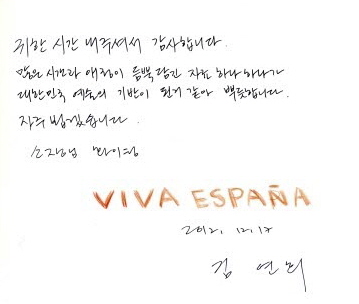 귀한 시간 내주셔서 감사합니다.
많은 시간과 애정이 듬뿍 담긴 자료 하나하나가
대한민국 예술의 기반이 된것 같아 뿌듯합니다.
자주 뵙겠습니다.
소장님 화이팅
VIVA ESPAÑA
2012. 12. 17
김 연